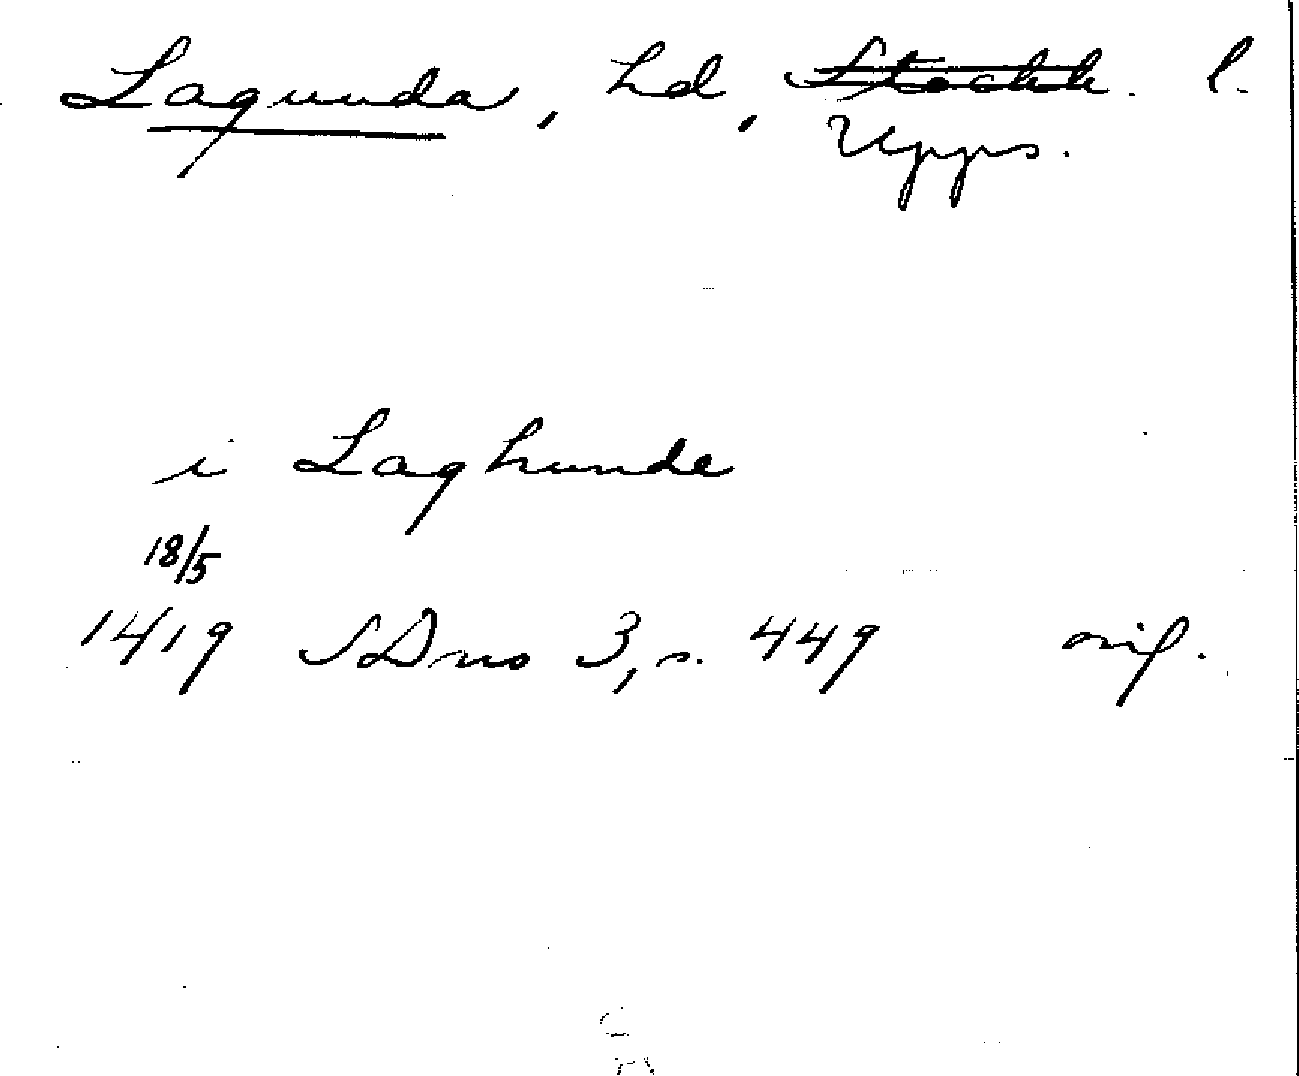 Lagunda, hd, Stockh. l.
Upps.
i Laghunde
18/5
1419 SDns 3, s. 449 orig.